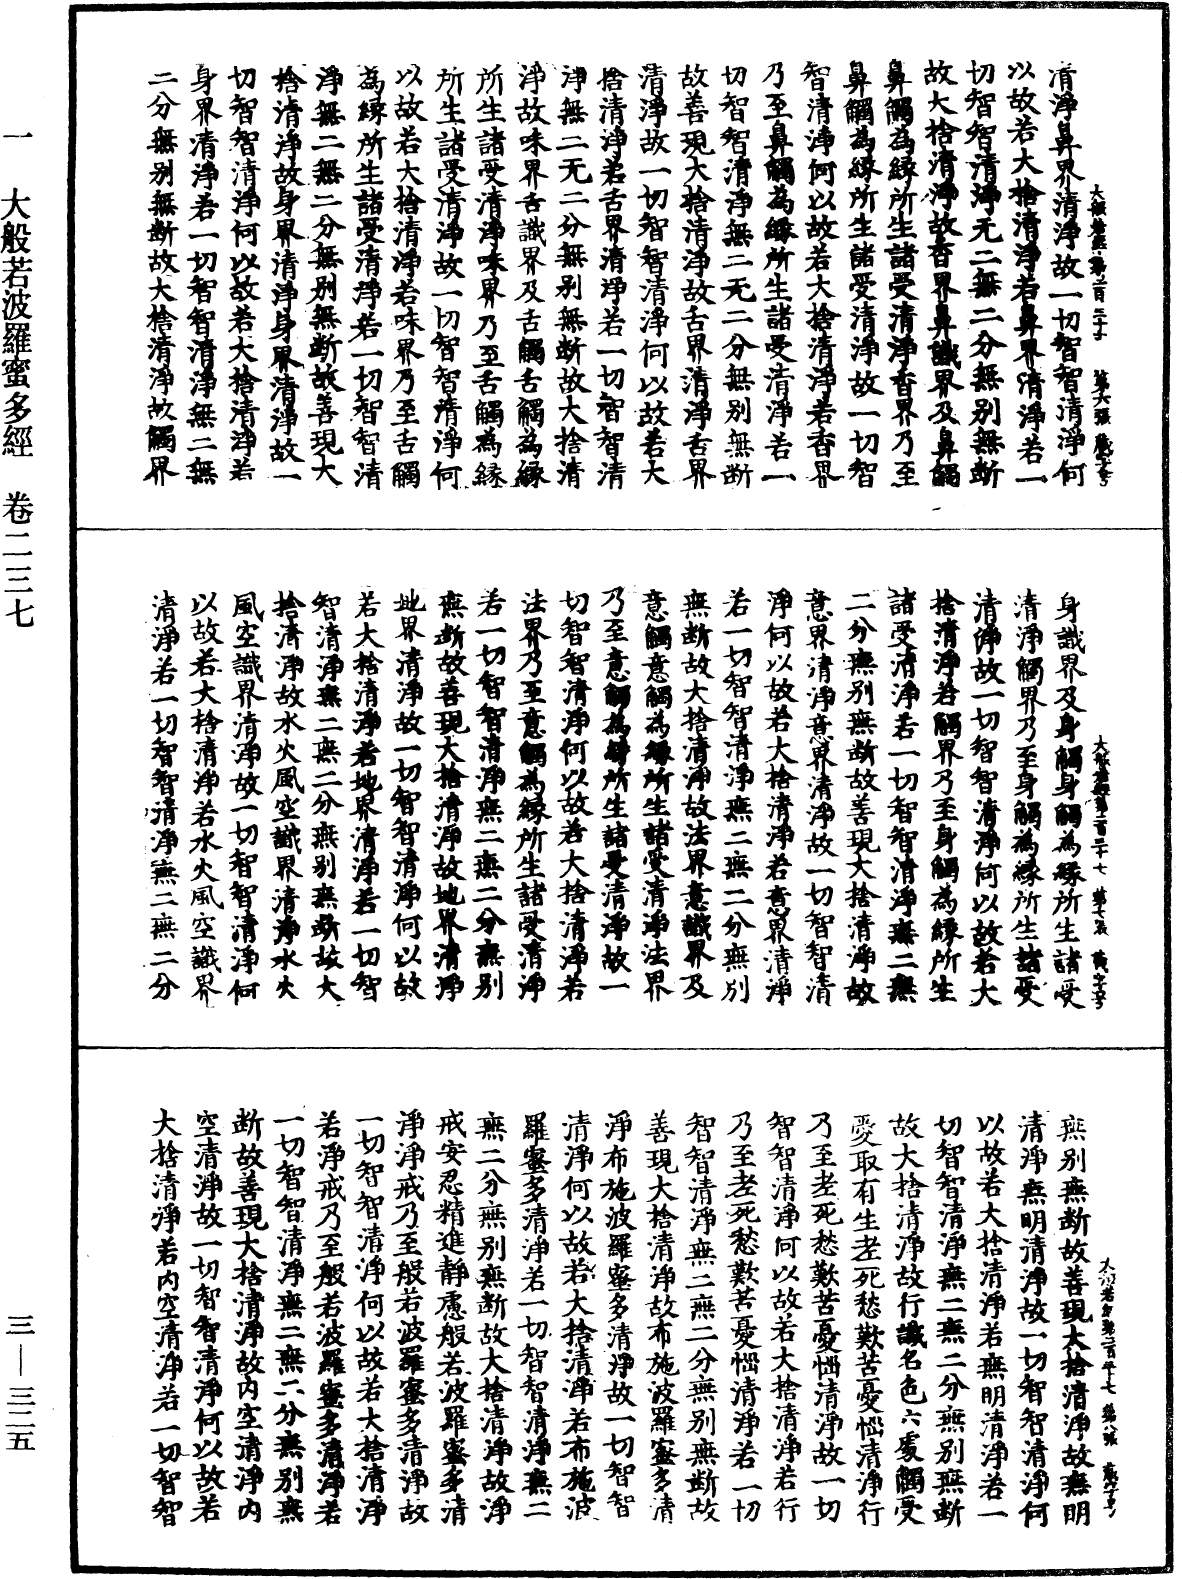 清淨鼻界清淨故一切智智清淨何
以故若大捨清淨若鼻界清淨若一
切智智清淨无二無二分無别無断
故大捨清淨故香界鼻識界及鼻觸
鼻觸為縁所生諸受清淨香界乃至
鼻觸為縁所生諸受清淨故一切智
智清淨何以故若大捨清淨若香界
乃至鼻觸為縁所生諸受清淨若一
切智智清淨無二无二分無别無断
故善現大捨清淨故舌界清淨舌界
清淨故一切智智清淨何以故若大
捨清淨若舌界清淨若一切智智清
淨無二无二分無别無断故大捨清
淨故味界舌識界及舌觸舌觸為縁
所生諸受清淨味界乃至舌觸為縁
所生諸受清淨故一切智智清淨何
以故若大捨清淨若味界乃至舌觸
為縁所生諸受清淨若一切智智清
淨無二無二分無别無断故善現大
捨清淨故身界清淨身界清淨故一
切智智清淨何以故若大捨清淨若
身界清淨若一切智智清淨無二無
二分無别無断故大捨清淨故觸界
身識界及身觸身觸為縁所生諸受
清淨觸界乃至身觸為縁所生諸受
清淨故一切智智清淨何以故若大
捨清淨若觸界乃至身觸為縁所生
諸受清淨若一切智智清淨無二無
二分無别無断故善現大捨清淨故
意界清淨意界清淨故一切智智清
淨何以故若大捨清淨若意界清淨
若一切智智清淨無二無二分無别
無断故大捨清淨故法界意識界及
意觸意觸為縁所生諸受清淨法界
乃至意觸為縁所生諸受清淨故一
切智智清淨何以故若大捨清淨若
法界乃至意觸為縁所生諸受清淨
若一切智智清淨無二無二分無别
無断故善現大捨清淨故地界清淨
地界清淨故一切智智清淨何以故
若大捨清淨若地界清淨若一切智
智清淨無二無二分無别無断故大
捨清淨故水火風空識界清淨水火
風空識界清淨故一切智智清淨何
以故若大捨清淨若水火風空識界
清淨若一切智智清淨無二無二分
無别無断故善現大捨清淨故無明
清淨無明清淨故一切智智清淨何
以故若大捨清淨若無明清淨若一
切智智清淨無二無二分無别無断
故大捨清淨故行識名色六處觸受
愛取有生老死愁歎苦憂惱清淨行
乃至老死愁歎苦憂惱清淨故一切
智智清淨何以故若大捨清淨若行
乃至老死愁歎苦憂惱清淨若一切
智智清淨無二無二分無别無断故
善現大捨清淨故布施波羅蜜多清
淨布施波羅蜜多清淨故一切智智
清淨何以故若大捨清淨若布施波
羅蜜多清淨若一切智智清淨無二
無二分無别無断故大捨清淨故淨
戒安忍精進静慮般若波羅蜜多清
淨淨戒乃至般若波羅蜜多清淨故
一切智智清淨何以故若大捨清淨
若淨戒乃至般若波羅蜜多清淨若
一切智智清淨無二無二分無别無
断故善現大捨清淨故内空清淨内
空清淨故一切智智清淨何以故若
大捨清淨若内空清淨若一切智智
一 大般若波羅蜜多經 卷二三七
三—三二五